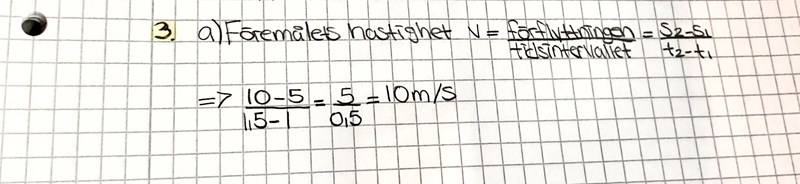 3. a) Föremålets hastighet v = förflyttningen/tidsintervallet = s₂-s₁/t₂-t₁
=> 10-5/1,5-1 = 5/0,5 = 10m/s